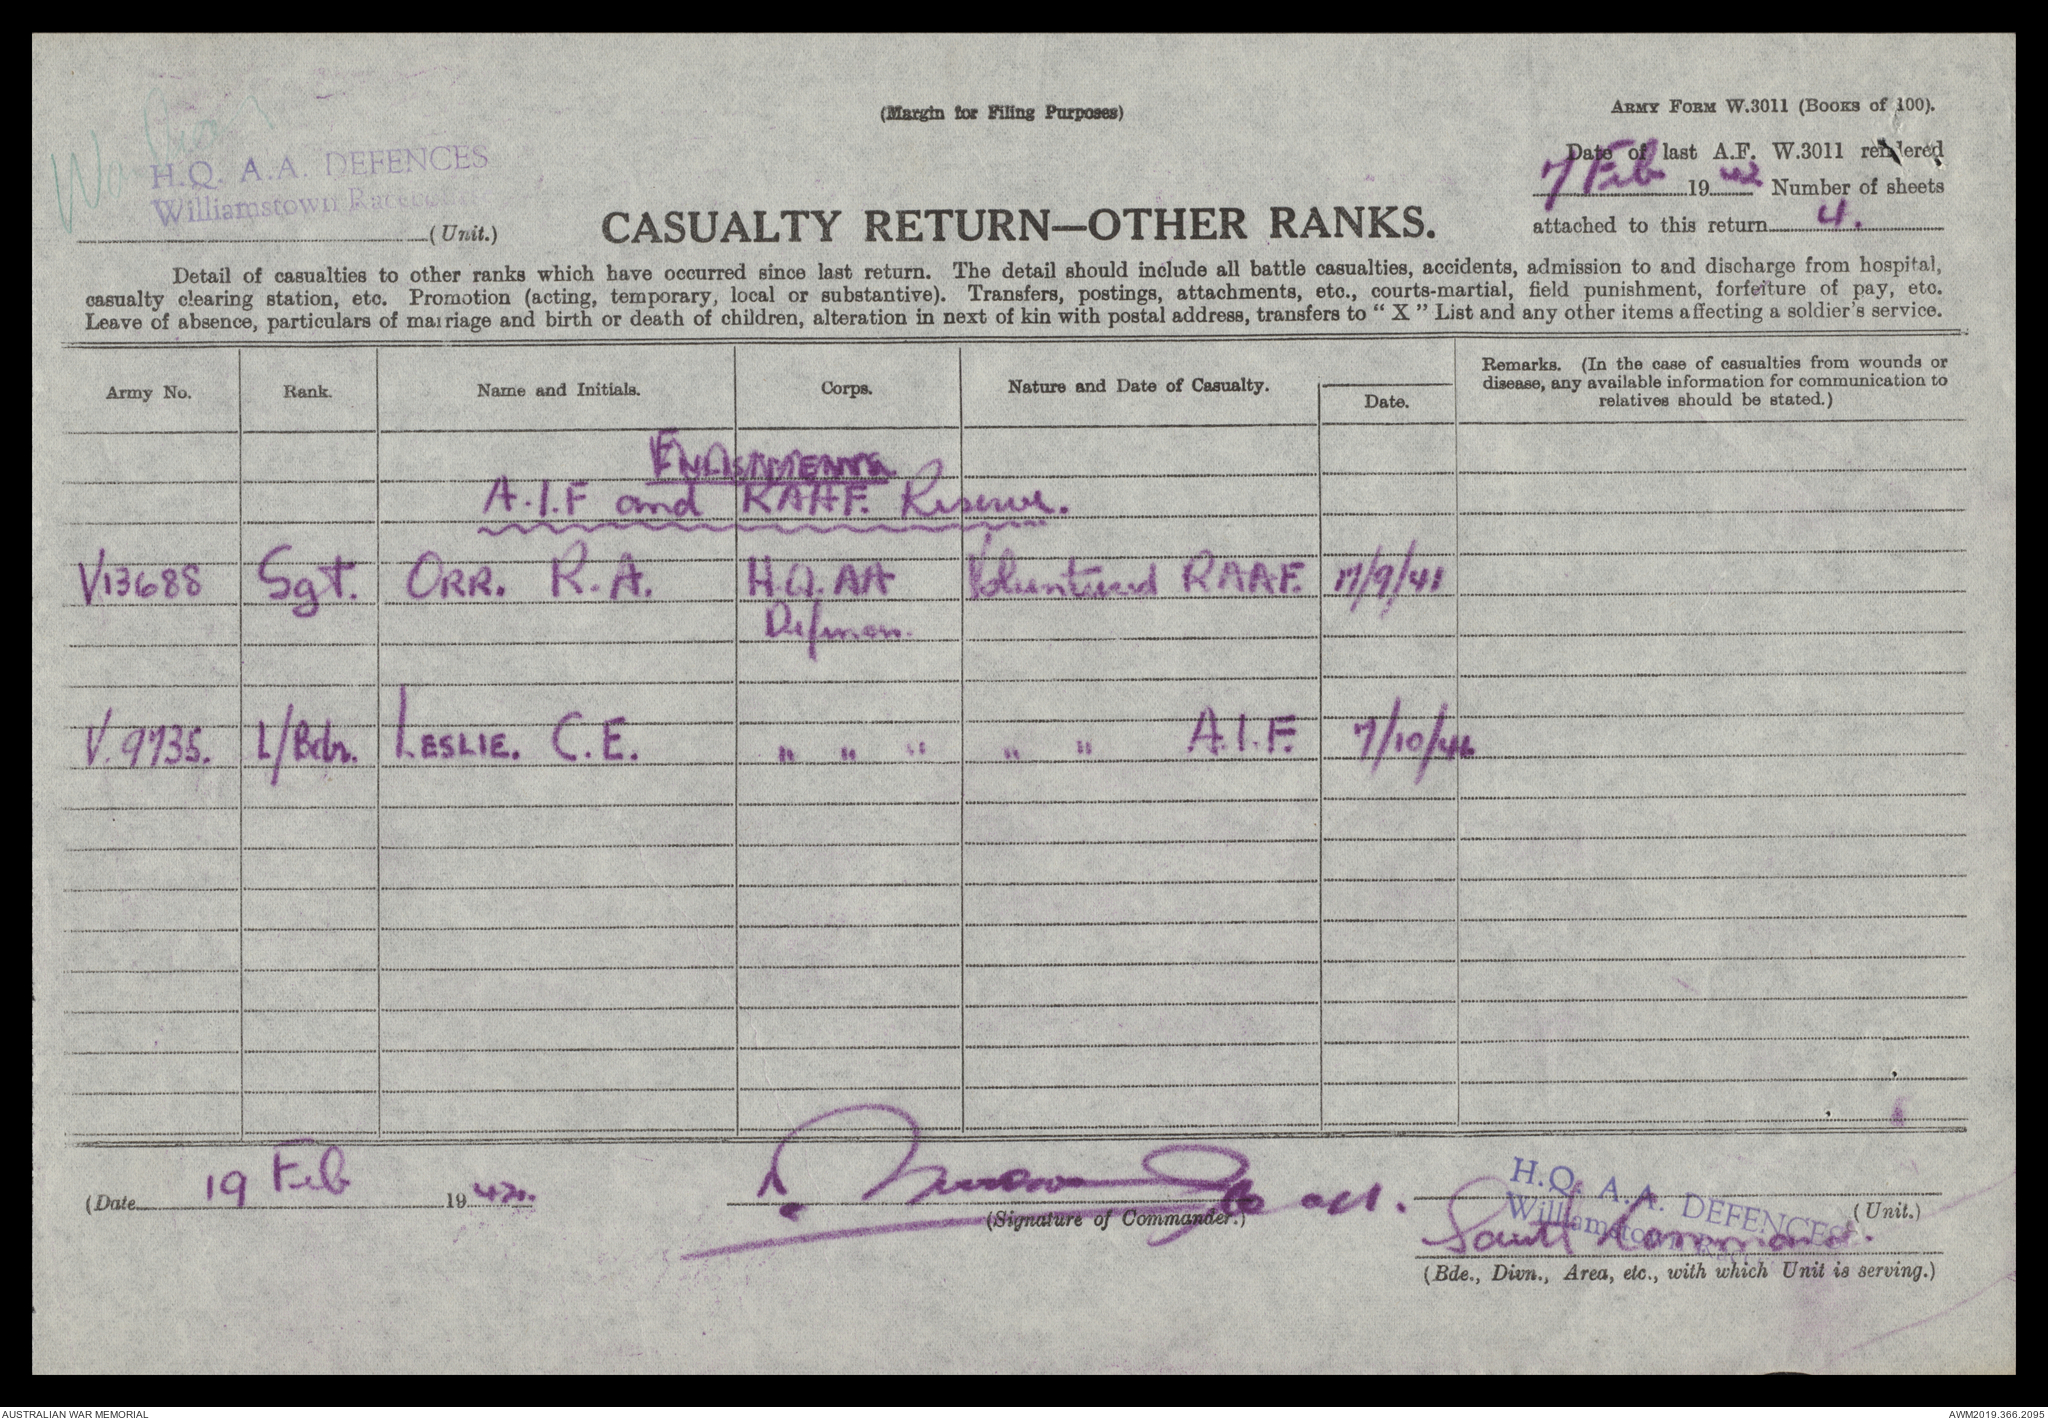 (Margin for Filing Purposes)
ARMY FORM W.3011 (BOOKS of 100).
H.Q. A.A. DEFENCES
Williamstown Racecourse
(Unit.)
Date of last A.F. W.3011 rendered
7 Feb 19 42 Number of sheets
attached to this return 4.
CASUALTY RETURN—OTHER RANKS.
Detail of casualties to other ranks which have occurred since last return. The detail should include all battle casualties, accidents, admission to and discharge from hospital,
casualty clearing station, etc. Promotion (acting, temporary, local or substantive). Transfers, postings, attachments, etc., courts-martial, field punishment, forfeiture of pay, etc.
Leave of absence, particulars of marriage and birth or death of children, alteration in next of kin with postal address, transfers to " X " List and any other items affecting a soldier's service.
Army No. Rank. Name and Initials. Corps. Nature and Date of Casualty. Date. Remarks. (In the case of casualties from wounds or
disease, any available information for communication to
relatives should be stated.)
A.I.F and RAAF. Reserve.
V13688 Sgt. ORR. R.A. H.Q. AA Volunteered RAAF. 17/9/41
V.9735. L/Bdr. LESLIE. C.E. " " " " " A.I.F. 7/10/41
(Date 19 Feb 19 42.
(Signature of Commander.)
H.Q. A.A. DEFENCES
Williamstown
(Unit.)
South Command.
(Bde., Divn., Area, etc., with which Unit is serving.)
AUSTRALIAN WAR MEMORIAL
AWM2019.366.2095